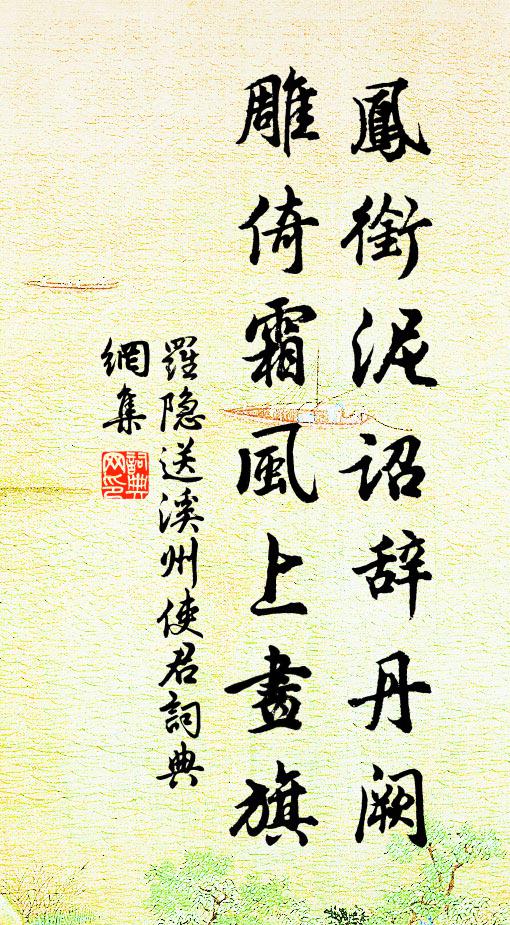 鳳銜泥詔辞丹阙
雕倚霜風上畫旗
羅隐送溪州使君詞典
網集
詞典
网印